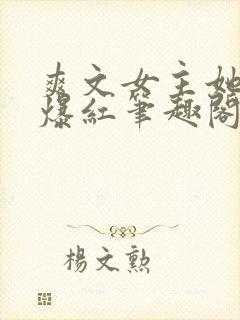 爽文女主她
爆紅筆趣閣
楊文勲